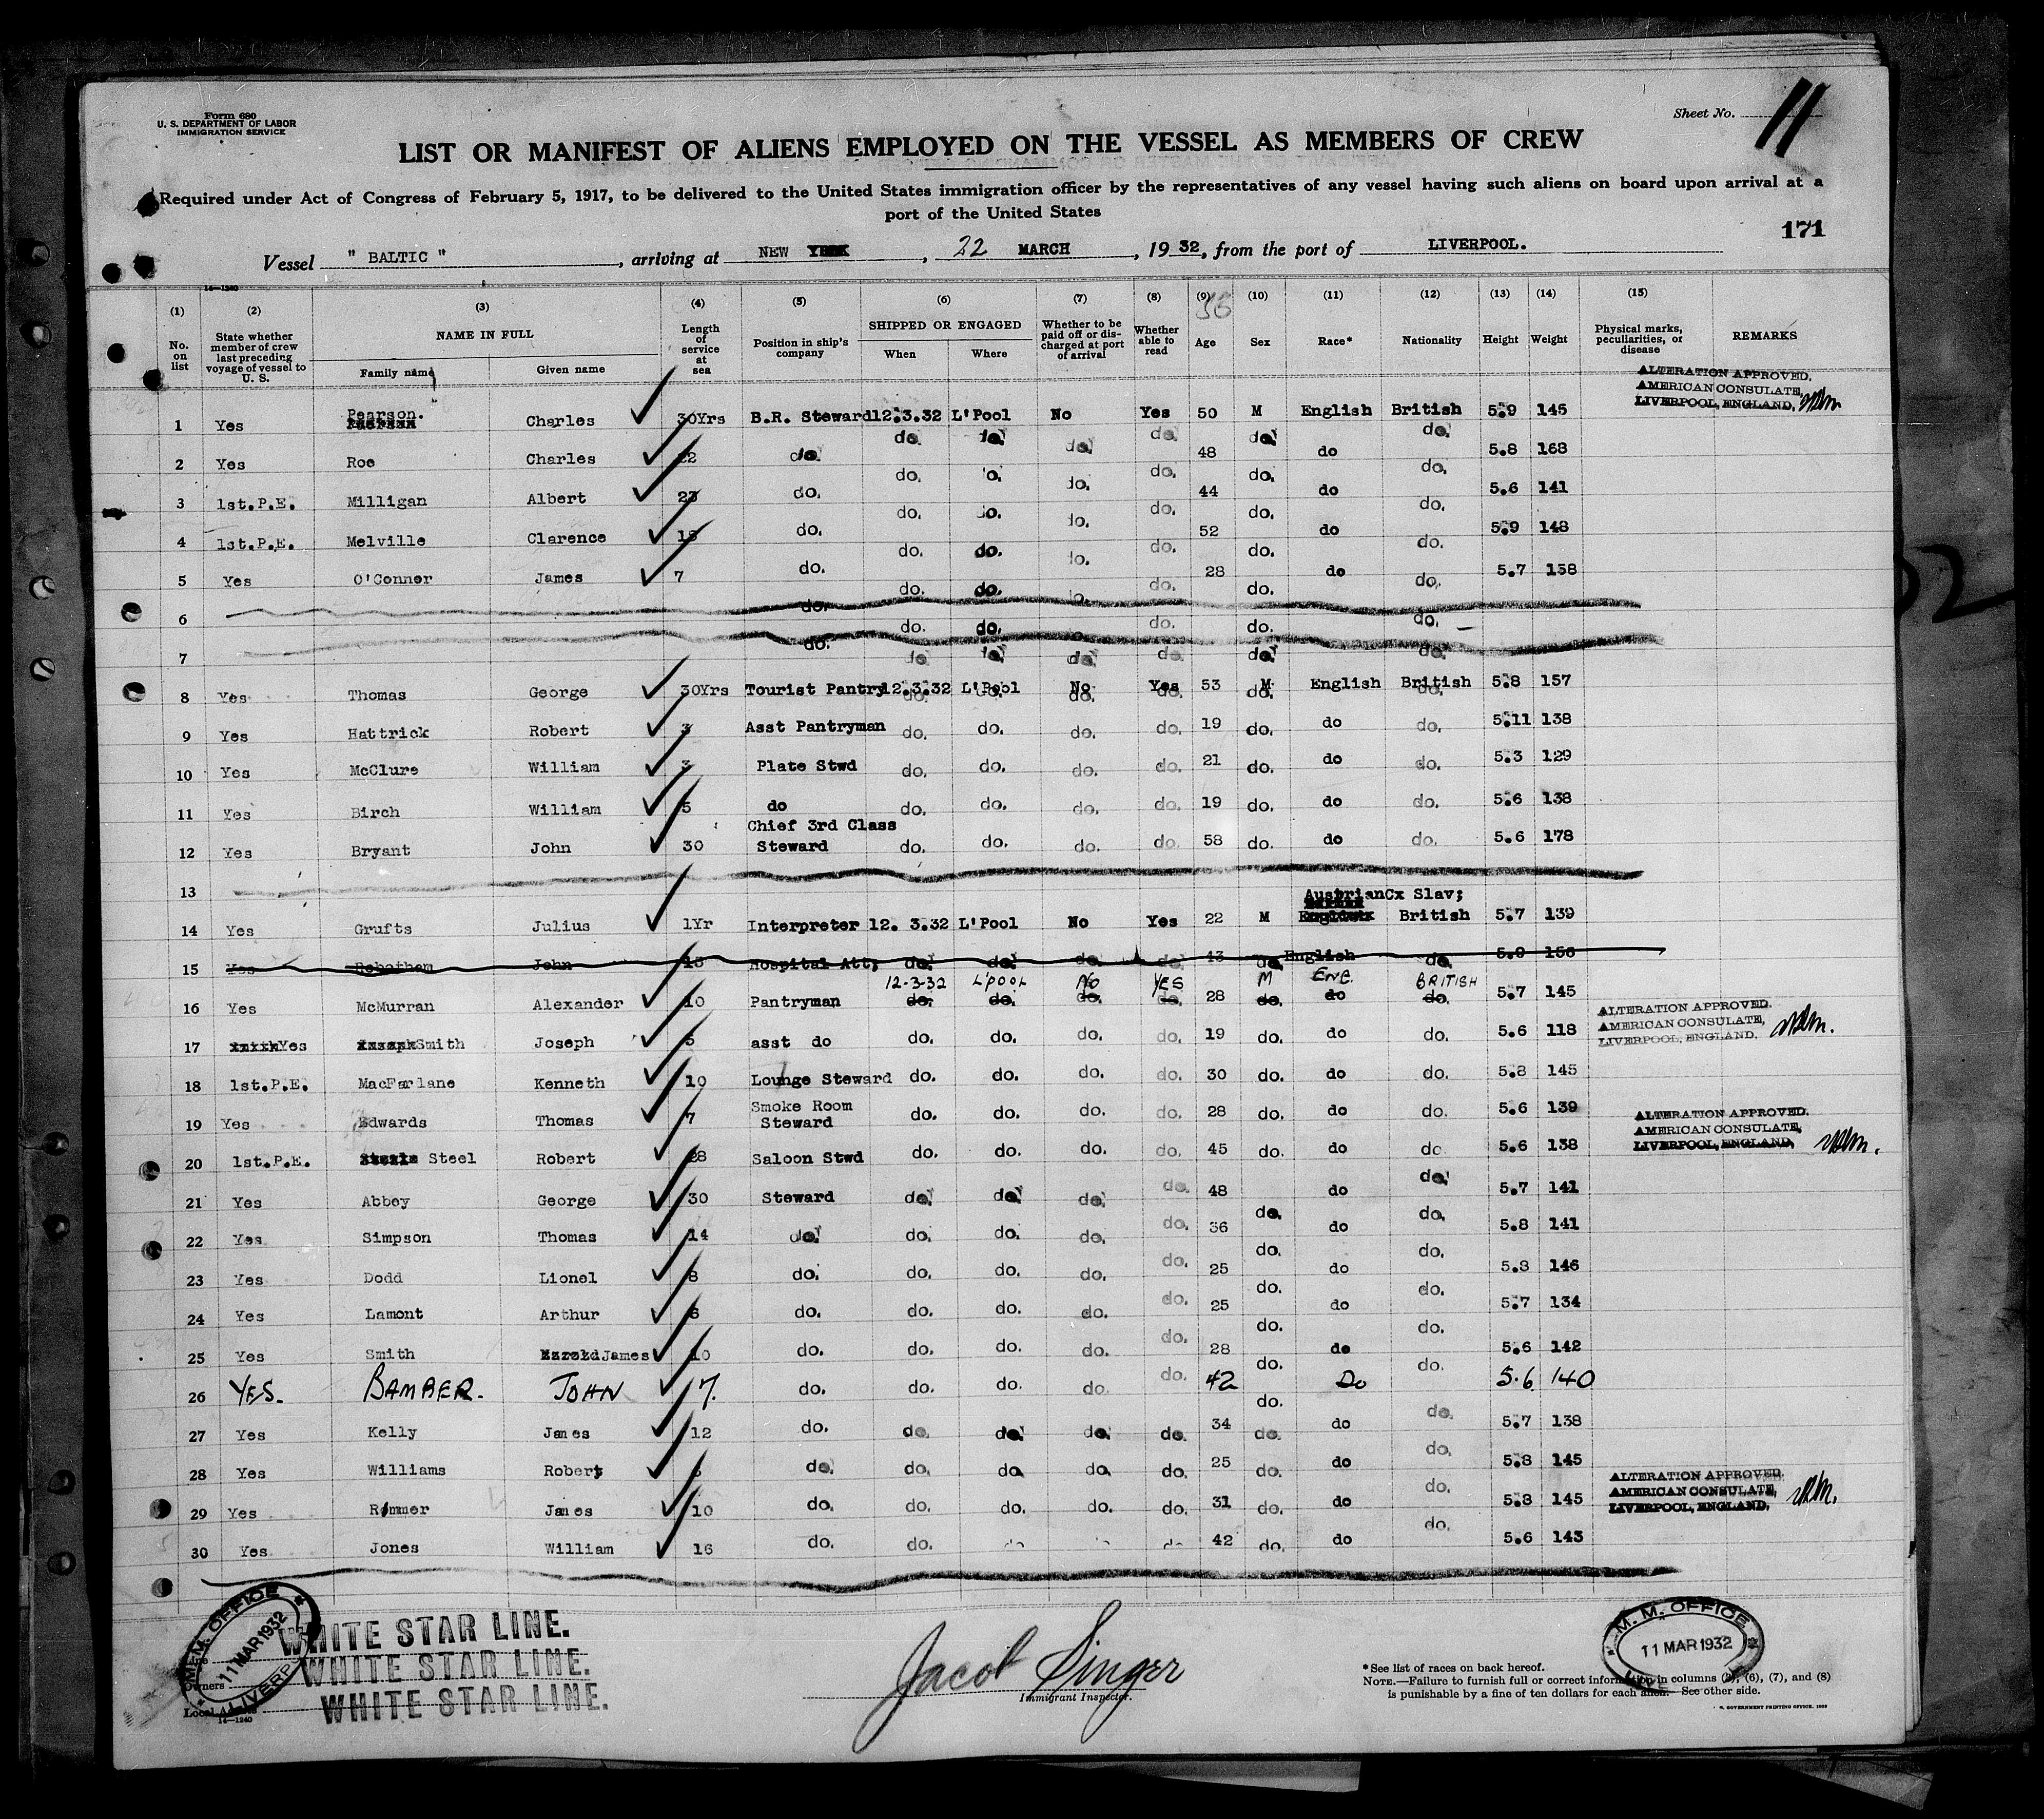 Form 680
U. S. DEPARTMENT OF LABOR
IMMIGRATION SERVICE
Sheet No. 11
LIST OR MANIFEST OF ALIENS EMPLOYED ON THE VESSEL AS MEMBERS OF CREW
Required under Act of Congress of February 5, 1917, to be delivered to the United States immigration officer by the representatives of any vessel having such aliens on board upon arrival at a
port of the United States
171
Vessel " BALTIC ", arriving at NEW YORK, 22 MARCH, 1932, from the port of LIVERPOOL.
14—1240
(1) (2) (3) (4) (5) (6) (7) (8) (9) (10) (11) (12) (13) (14) (15)
No. on list
State whether member of crew last preceding voyage of vessel to U. S.
NAME IN FULL
Family name Given name
Length of service at sea
Position in ship's company
SHIPPED OR ENGAGED
When Where
Whether to be paid off or discharged at port of arrival
Whether able to read
Age Sex Race* Nationality Height Weight
Physical marks, peculiarities, or disease
REMARKS
ALTERATION APPROVED.
AMERICAN CONSULATE,
LIVERPOOL, ENGLAND.
1 Yes Pearson. Charles 30Yrs B.R. Steward 12.3.32 L'Pool No Yes 50 M English British 5.9 145
2 Yes Roe Charles 22 do. do. do. do. do. 48 do. do do. 5.8 168
3 1st.P.E. Milligan Albert 23 do. do. do. do. do. 44 do. do do. 5.6 141
4 1st.P.E. Melville Clarence do. do. do. do. do. 52 do. do do. 5.9 148
5 Yes O'Conner James 7 do. do. do. do. do. 28 do. do do. 5.7 158
6 do. do. do. do. do. do.
7 do. do. do. do. do. do. do.
8 Yes Thomas George 30Yrs Tourist Pantry 12.3.32 L'Pool No Yes 53 M English British 5.8 157
9 Yes Hattrick Robert 3 Asst Pantryman do. do. do. do. 19 do. do do. 5.11 138
10 Yes McClure William 3 Plate Stwd do. do. do. do. 21 do. do do. 5.3 129
11 Yes Birch William 5 do do. do. do. do. 19 do. do do. 5.6 138
12 Yes Bryant John 30 Chief 3rd Class Steward do. do. do. do. 58 do. do do. 5.6 178
13
AustrianCx Slav;
14 Yes Grufts Julius 1Yr Interpreter 12. 3.32 L'Pool No Yes 22 M British 5.7 139
15 Yes John 15 Hospital Att; do. do. do. do. 43 do. English do. 5.9 156
12-3-32 L'POOL NO YES M ENG. BRITISH
16 Yes McMurran Alexander 10 Pantryman do. do. do. do. 28 do. do do. 5.7 145
ALTERATION APPROVED.
AMERICAN CONSULATE,
LIVERPOOL, ENGLAND.
17 Yes Smith Joseph 5 asst do do. do. do. do. 19 do. do do. 5.6 118
18 1st.P.E. MacFarlane Kenneth 10 Lounge Steward do. do. do. do. 30 do. do do. 5.8 145
19 Yes Edwards Thomas 7 Smoke Room Steward do. do. do. do. 28 do. do do. 5.6 139
ALTERATION APPROVED.
AMERICAN CONSULATE,
LIVERPOOL, ENGLAND,
20 1st.P.E. Steel Robert 28 Saloon Stwd do. do. do. do. 45 do. do do 5.6 138
21 Yes Abbey George 30 Steward do. do. do. do. 48 do do. 5.7 141
22 Yes Simpson Thomas 14 do. do. do. do. do. 36 do. do do. 5.8 141
23 Yes Dodd Lionel 8 do. do. do. do. do. 25 do. do do. 5.8 146
24 Yes Lamont Arthur do. do. do. do. do. 25 do. do do. 5.7 134
25 Yes Smith James 10 do. do. do. do. do. 28 do. do do. 5.6 142
26 YES. BAMBER. JOHN 7. do. do. do. do. do. 42 do. Do do. 5.6 140
27 Yes Kelly James 12 do. do. do. do. do. 34 do. do do. 5.7 138
28 Yes Williams Robert do. do. do. do. do. 25 do. do do. 5.8 145
ALTERATION APPROVED.
AMERICAN CONSULATE,
LIVERPOOL, ENGLAND,
29 Yes Rimmer James 10 do. do. do. do. do. 31 do. do do. 5.8 145
30 Yes Jones William 16 do. do. do 42 do. do do. 5.6 143
M.M. OFFICE
11 MAR 1932
LIVERP
WHITE STAR LINE.
WHITE STAR LINE.
WHITE STAR LINE.
Owners
Local A
14—1240
Jacob Singer
Immigrant Inspector.
M. M. OFFICE
11 MAR 1932
*See list of races on back hereof.
NOTE.—Failure to furnish full or correct information in columns (3), (6), (7), and (8)
is punishable by a fine of ten dollars for each alien. See other side.
GOVERNMENT PRINTING OFFICE